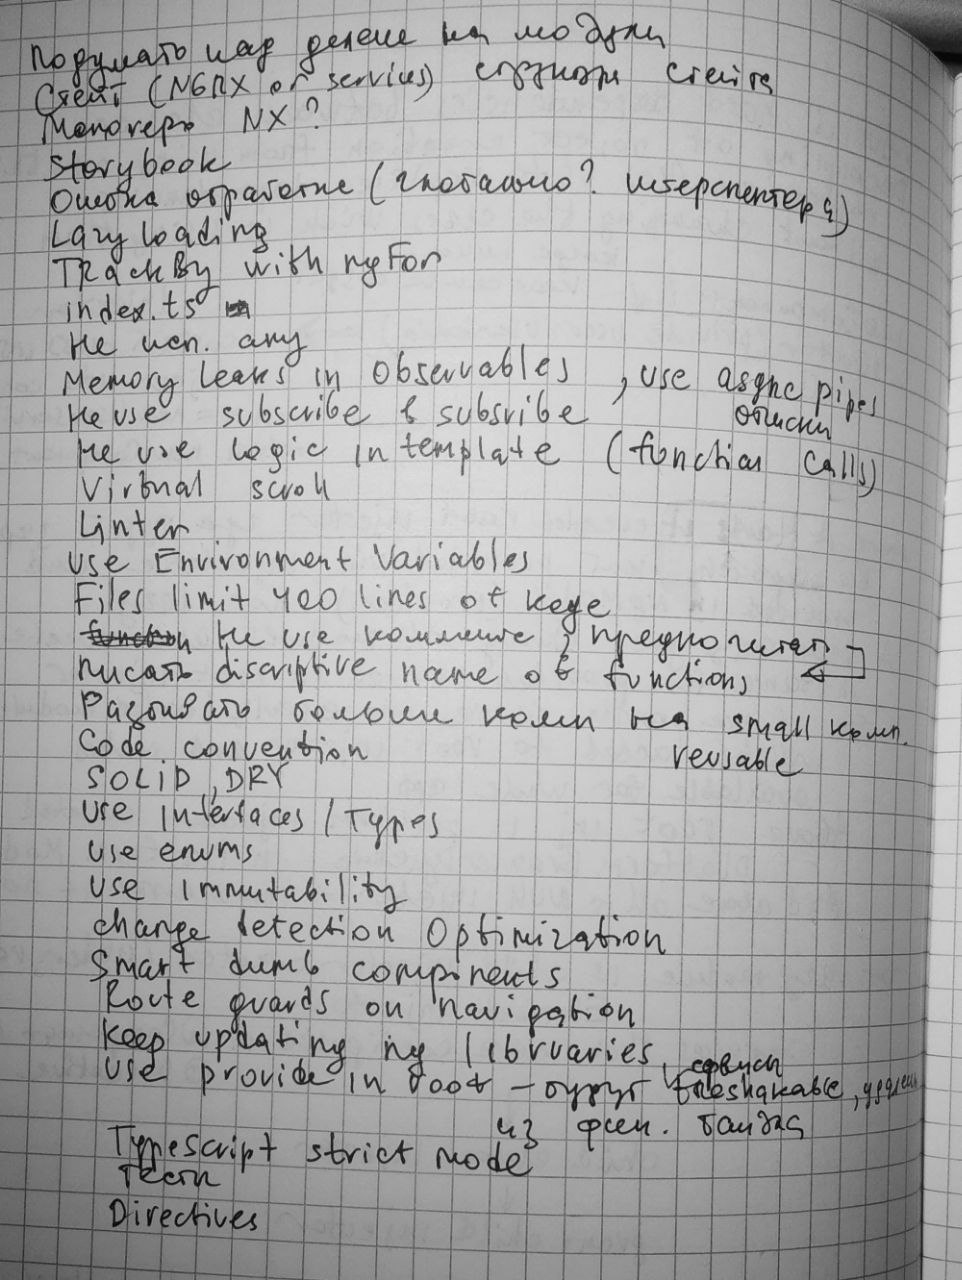 Подумать над деление на модули
Стейт (NGRX or services) структури стейта
Монорепо NX?
Storybook
Ошибка обработка (глобально? интерсептеры)
Lazy loading
TrackBy with ngFor
index.ts
Не исп. any
Memory leaks in Observables , use async pipes
Не use subscribe в subsribe отписки
Не use logic in template (function calls)
Virtual scroll
Linter
Use Environment Variables
Files limit 400 lines of коде
Не use комменте, предпочитать
писать discriptive name of functions
Разбивать больши комп на small комп.
Code convention reusable
SOLID, DRY
Use Interfaces / Types
Use enums
Use immutability
change detection Optimization
Smart dumb components
Route guards on navigation
Keep updating ng libruaries
Use provide in root – будут treeshakable, сервисы
из фин. бандла
Typescript strict mode
Тесты
Directives